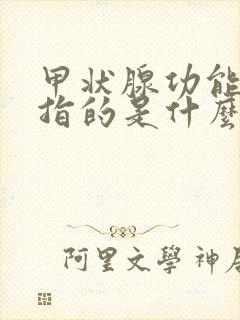 甲状腺功能
指的是什麼
阿里文學 神居